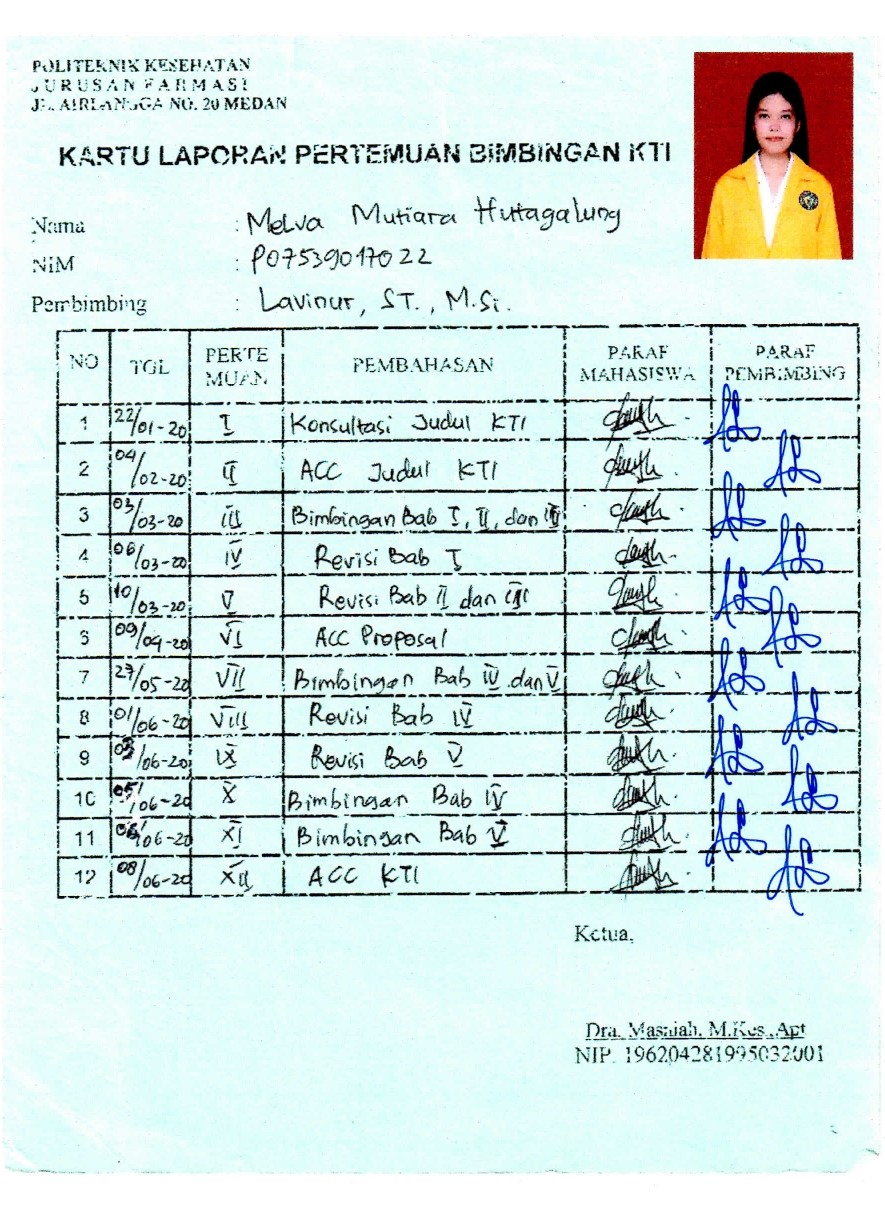 POLITEKNIK KESEHATAN
JURUSAN FARMASI
JL. AIRLANGGA NO. 20 MEDAN
KARTU LAPORAN PERTEMUAN BIMBINGAN KTI
Nama : Melva Mutiara Hutagalung
NIM : P07539017022
Pembimbing : Lavinur, ST., M.Si.
NO TGL PERTEMUAN PEMBAHASAN PARAF MAHASISWA PARAF PEMBIMBING
1 22/01-20 I Konsultasi Judul KTI
2 04/02-20 II ACC Judul KTI
3 03/03-20 III Bimbingan Bab I, II, dan III
4 06/03-20 IV Revisi Bab I
5 10/03-20 V Revisi Bab II dan III
6 09/04-20 VI ACC Proposal
7 27/05-20 VII Bimbingan Bab IV dan V
8 01/06-20 VIII Revisi Bab IV
9 /06-20 IX Revisi Bab V
10 05/06-20 X Bimbingan Bab IV
11 /06-20 XI Bimbingan Bab V
12 08/06-20 XII ACC KTI
Ketua,
Dra. Masniah, M.Kes., Apt
NIP. 196204281995032001